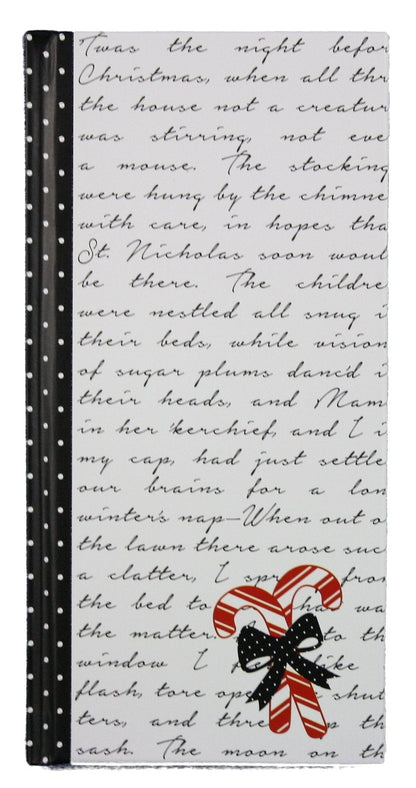 'Twas the night befor
Christmas, when all thr
the house not a creatur
was stirring, not eve
a mouse. The stocking
were hung by the chimne
with care, in hopes tha
St. Nicholas soon woul
be there. The childre
were nestled all snug i
their beds, while vision
of sugar plums danc'd i
their heads, and Mam
in her 'kerchief, and I i
my cap, had just settle
our brains for a lon
winter's nap—When out o
the lawn there arose suc
a clatter, I spr from
the bed to ha wa
the matter. to th
window I like
flash, tore ope shut
ters, and thre p th
sash. The moon on th